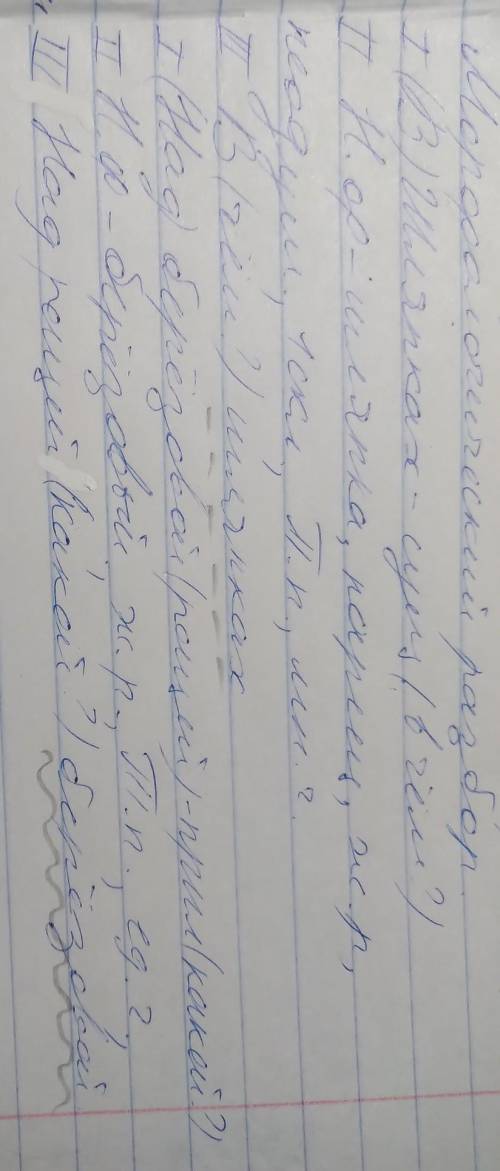 Морфологический разбор.
I (В) Шляпках - сущ (в чём?)
II Н.ф - шляпка, нариц, ж.р,
неодуш, 1скл, П.п, мн.ч.
III В (чём?) шляпках
I (Над) берёзовой (рощей) - прил (какой?)
II Н.ф - берёзовый ж.р., Т.п., ед.ч
III Над рощей (какой?) берёзовой